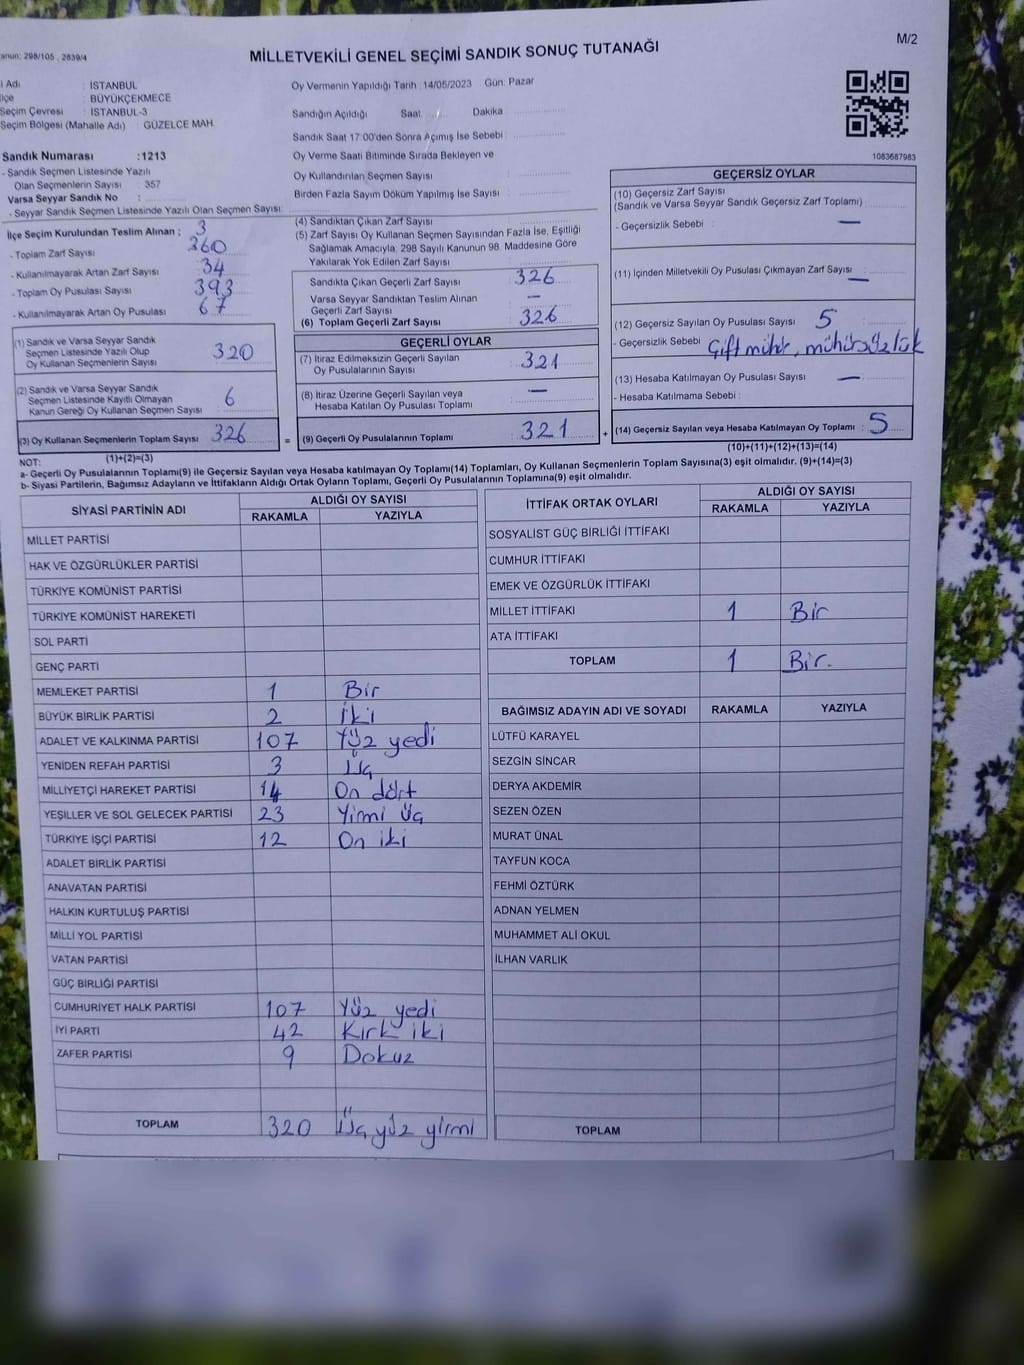 M/2
anun: 298/105 , 2839/4
MİLLETVEKİLİ GENEL SEÇİMİ SANDIK SONUÇ TUTANAĞI
l Adı : İSTANBUL
lçe : BÜYÜKÇEKMECE
Seçim Çevresi : İSTANBUL-3
Seçim Bölgesi (Mahalle Adı) : GÜZELCE MAH.
Sandık Numarası :1213
- Sandık Seçmen Listesinde Yazılı
Olan Seçmenlerin Sayısı : 357
Varsa Seyyar Sandık No :
- Seyyar Sandık Seçmen Listesinde Yazılı Olan Seçmen Sayısı:
Oy Vermenin Yapıldığı Tarih :14/05/2023 Gün: Pazar
Sandığın Açıldığı Saat: Dakika :
Sandık Saat 17:00'den Sonra Açımış İse Sebebi :
Oy Verme Saati Bitiminde Sırada Bekleyen ve
Oy Kullandırılan Seçmen Sayısı :
Birden Fazla Sayım Döküm Yapılmış İse Sayısı :
1083687983
İlçe Seçim Kurulundan Teslim Alınan : 3
- Toplam Zarf Sayısı 360
- Kullanılmayarak Artan Zarf Sayısı 34
- Toplam Oy Pusulası Sayısı 393
- Kullanılmayarak Artan Oy Pusulası 67
(1) Sandık ve Varsa Seyyar Sandık
Seçmen Listesinde Yazılı Olup
Oy Kullanan Seçmenlerin Sayısı 320
(2) Sandık ve Varsa Seyyar Sandık
Seçmen Listesinde Kayıtlı Olmayan
Kanun Gereği Oy Kullanan Seçmen Sayısı 6
(3) Oy Kullanan Seçmenlerin Toplam Sayısı 326
(1)+(2)=(3)
(4) Sandıktan Çıkan Zarf Sayısı :
(5) Zarf Sayısı Oy Kullanan Seçmen Sayısından Fazla İse, Eşitliği
Sağlamak Amacıyla, 298 Sayılı Kanunun 98. Maddesine Göre
Yakılarak Yok Edilen Zarf Sayısı :
Sandıkta Çıkan Geçerli Zarf Sayısı : 326
Varsa Seyyar Sandıktan Teslim Alınan
Geçerli Zarf Sayısı : —
(6) Toplam Geçerli Zarf Sayısı : 326
GEÇERLİ OYLAR
(7) İtiraz Edilmeksizin Geçerli Sayılan
Oy Pusulalarının Sayısı : 321
(8) İtiraz Üzerine Geçerli Sayılan veya
Hesaba Katılan Oy Pusulası Toplamı : —
= (9) Geçerli Oy Pusulalarının Toplamı : 321 +
GEÇERSİZ OYLAR
(10) Geçersiz Zarf Sayısı
(Sandık ve Varsa Seyyar Sandık Geçersiz Zarf Toplamı) :
- Geçersizlik Sebebi : —
(11) İçinden Milletvekili Oy Pusulası Çıkmayan Zarf Sayısı : —
(12) Geçersiz Sayılan Oy Pusulası Sayısı 5 :
- Geçersizlik Sebebi : Çift mühür, mühürsüzlük
(13) Hesaba Katılmayan Oy Pusulası Sayısı : —
- Hesaba Katılmama Sebebi :
(14) Geçersiz Sayılan veya Hesaba Katılmayan Oy Toplamı : 5
(10)+(11)+(12)+(13)=(14)
NOT:
a- Geçerli Oy Pusulalarının Toplamı(9) ile Geçersiz Sayılan veya Hesaba katılmayan Oy Toplamı(14) Toplamları, Oy Kullanan Seçmenlerin Toplam Sayısına(3) eşit olmalıdır. (9)+(14)=(3)
b- Siyasi Partilerin, Bağımsız Adayların ve İttifakların Aldığı Ortak Oyların Toplamı, Geçerli Oy Pusulalarının Toplamına(9) eşit olmalıdır.
SİYASİ PARTİNİN ADI ALDIĞI OY SAYISI
RAKAMLA YAZIYLA
MİLLET PARTİSİ
HAK VE ÖZGÜRLÜKLER PARTİSİ
TÜRKİYE KOMÜNİST PARTİSİ
TÜRKİYE KOMÜNİST HAREKETİ
SOL PARTİ
GENÇ PARTİ
MEMLEKET PARTİSİ 1 Bir
BÜYÜK BİRLİK PARTİSİ 2 İki
ADALET VE KALKINMA PARTİSİ 107 Yüz yedi
YENİDEN REFAH PARTİSİ 3 Üç
MİLLİYETÇİ HAREKET PARTİSİ 14 On dört
YEŞİLLER VE SOL GELECEK PARTİSİ 23 Yirmi üç
TÜRKİYE İŞÇİ PARTİSİ 12 On iki
ADALET BİRLİK PARTİSİ
ANAVATAN PARTİSİ
HALKIN KURTULUŞ PARTİSİ
MİLLİ YOL PARTİSİ
VATAN PARTİSİ
GÜÇ BİRLİĞİ PARTİSİ
CUMHURİYET HALK PARTİSİ 107 Yüz yedi
İYİ PARTİ 42 Kırk iki
ZAFER PARTİSİ 9 Dokuz
TOPLAM 320 Üç yüz yirmi
İTTİFAK ORTAK OYLARI ALDIĞI OY SAYISI
RAKAMLA YAZIYLA
SOSYALİST GÜÇ BİRLİĞİ İTTİFAKI
CUMHUR İTTİFAKI
EMEK VE ÖZGÜRLÜK İTTİFAKI
MİLLET İTTİFAKI 1 Bir
ATA İTTİFAKI
TOPLAM 1 Bir.
BAĞIMSIZ ADAYIN ADI VE SOYADI RAKAMLA YAZIYLA
LÜTFÜ KARAYEL
SEZGİN SİNCAR
DERYA AKDEMİR
SEZEN ÖZEN
MURAT ÜNAL
TAYFUN KOCA
FEHMİ ÖZTÜRK
ADNAN YELMEN
MUHAMMET ALİ OKUL
İLHAN VARLIK
TOPLAM